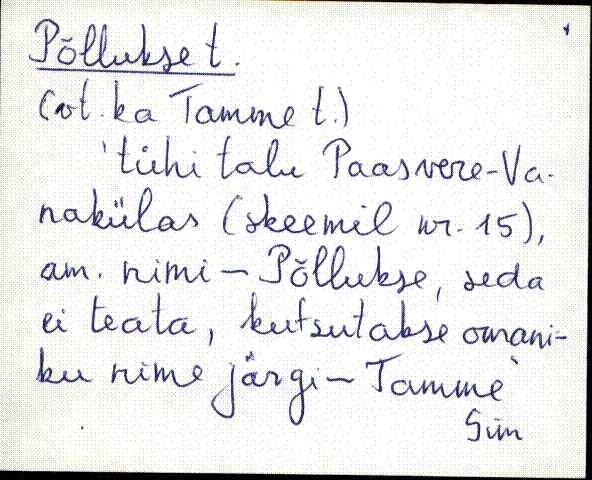 Põllukse t.
(vt. ka Tamme t.)
'tühi talu Paasvere-Va-
nakülas (skeemil nr. 15),
am. nimi – Põllukse, seda
ei teata, kutsutakse omani-
ku nime järgi – Tamme'
Sim